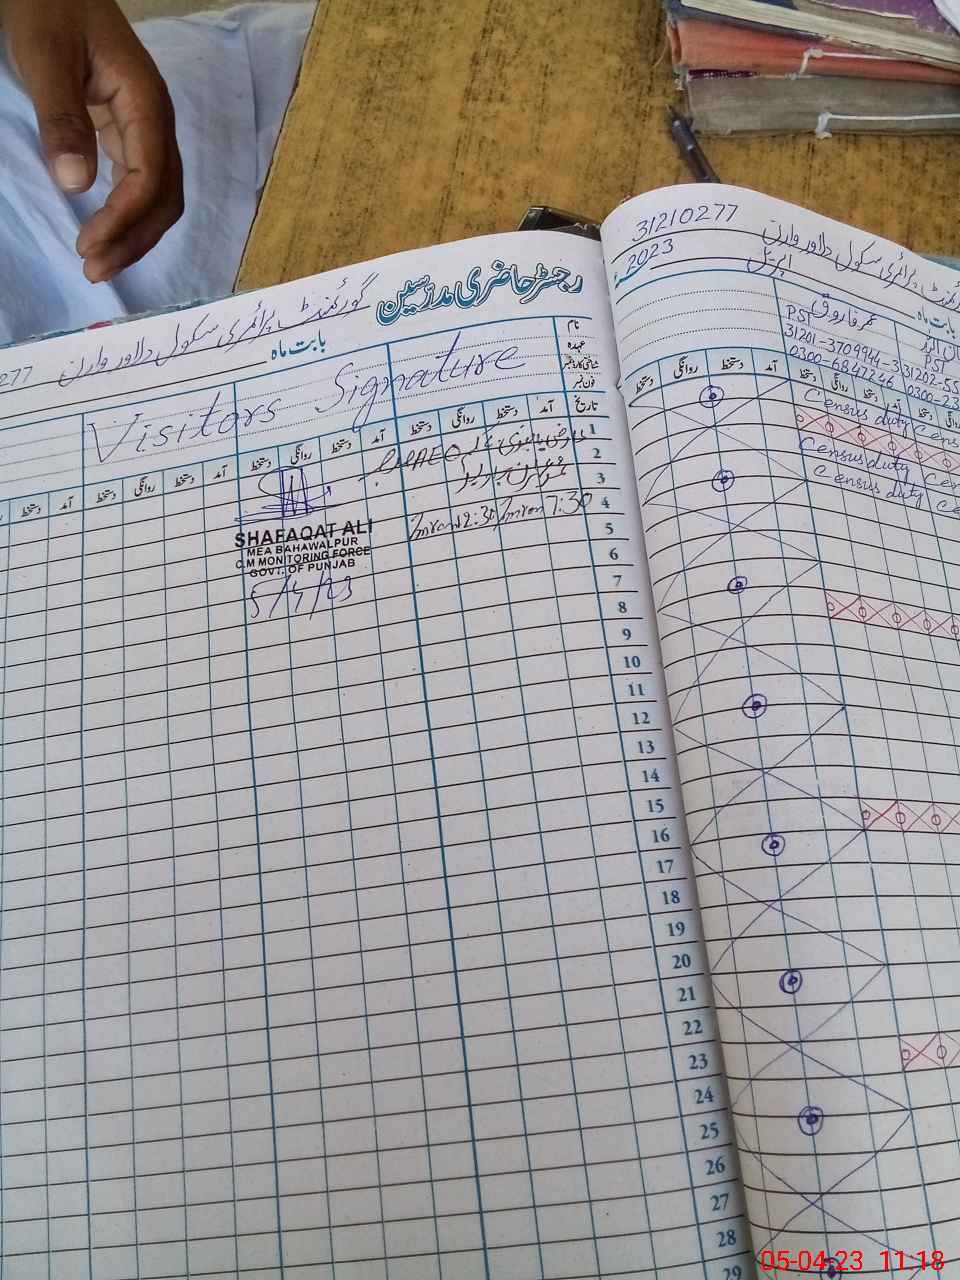 رجسٹر حاضری مدرسین
گورنمنٹ پرائمری سکول دلاور وارن
277
بابت ماہ
Visitors Signature
نام
عہدہ
شناختی کارڈ نمبر
فون نمبر
تاریخ
آمد دستخط روانگی دستخط آمد دستخط روانگی دستخط آمد دستخط روانگی دستخط آمد دستخط
AEO
7:30 2:30
SHAFAQAT ALI
MEA BAHAWALPUR
C.M MONITORING FORCE
GOVT. OF PUNJAB
5/4/23
1
2
3
4
5
6
7
8
9
10
11
12
13
14
15
16
17
18
19
20
21
22
23
24
25
26
27
28
29
31210277
گورنمنٹ پرائمری سکول دلاور وارن
2023
اپریل
بابت ماہ
عمر فاروق
PST
PST
31201-3709944-3
31202-55
0300-6847246
0300-23
آمد دستخط روانگی دستخط
آمد دستخط روانگی دستخط
Census duty
Census duty
Census duty
05-04-23 11:18